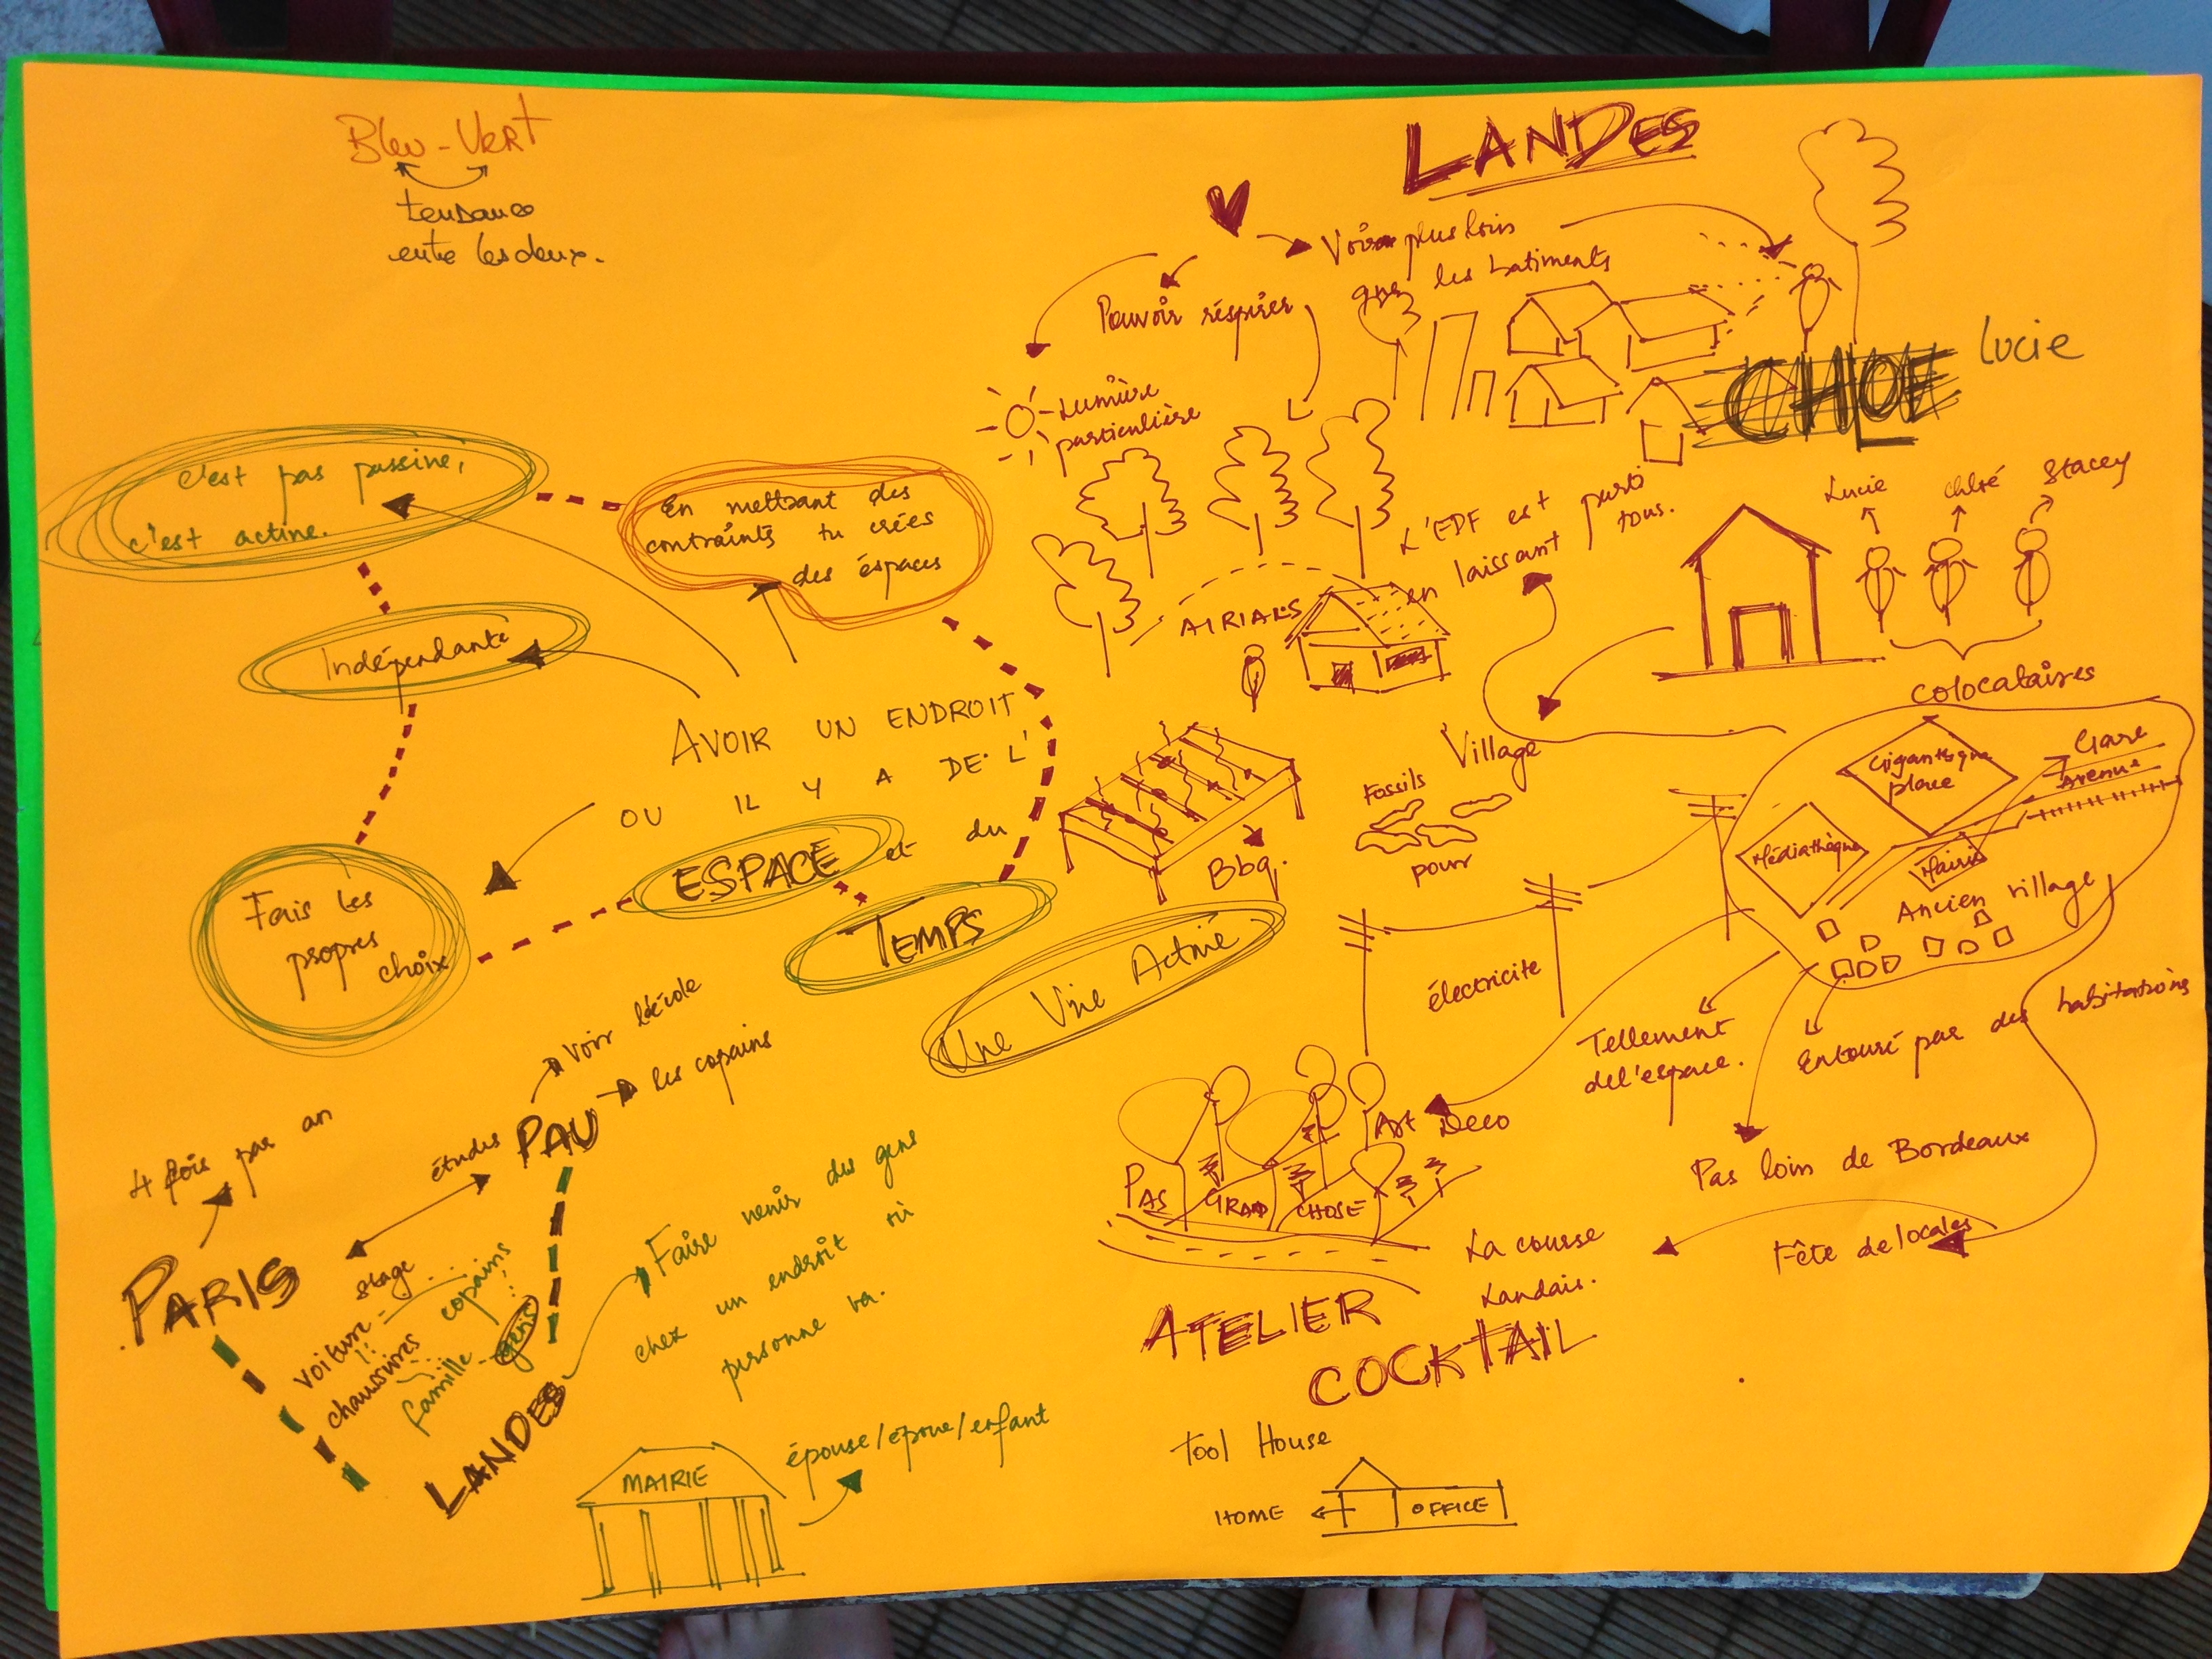 Bleu-Vert
tendance
entre les deux.
LANDES
Voir plus loin
que les batiments
Pouvoir réspirer
Lumière
particulière
CHLOE
Lucie
c'est pas passive,
c'est active.
En mettrant des
contraints tu crées
des éspaces
Indépendante
AVOIR UN ENDROIT
OU IL Y A DE L'
ESPACE et du
TEMPS
Fais les
propres
choix
Une Vie Active
L'EDF est parti
en laissant tous.
AIRIALS
Lucie
Chloé
Stacey
Colocataires
Village
Bbq.
Fossils
pour
électricite
Gigantesque
place
Gare
Avenue
Médiathèque
Mairie
Ancien village
Tellement
del'espace.
Entouré par des habitations
Art Deco
Pas loin de Bordeaux
Fête de locales
La course
Landais.
PAS
GRAND
CHOSE
ATELIER
COCKTAIL
Tool House
HOME
OFFICE
Voir l'école
les copains
PAU
études
4 fois par an
PARIS
stage
voiture
copains
chaussures
famille
gens
LANDES
Faire venir des gens
chez un endroit où
personne va.
MAIRIE
épouse/époue/enfant